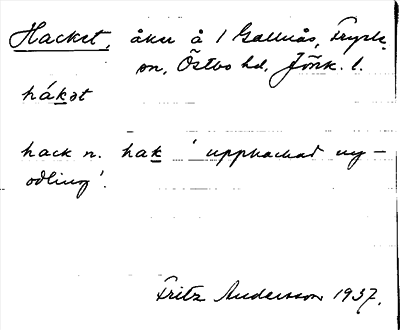 Hacket, åker å 1 Gallnås, Fryele
sn, Östbo hd, Jönk. l.
hákət
hack n. hak 'upphackad ny-
odling'.
Fritz Andersson 1937.